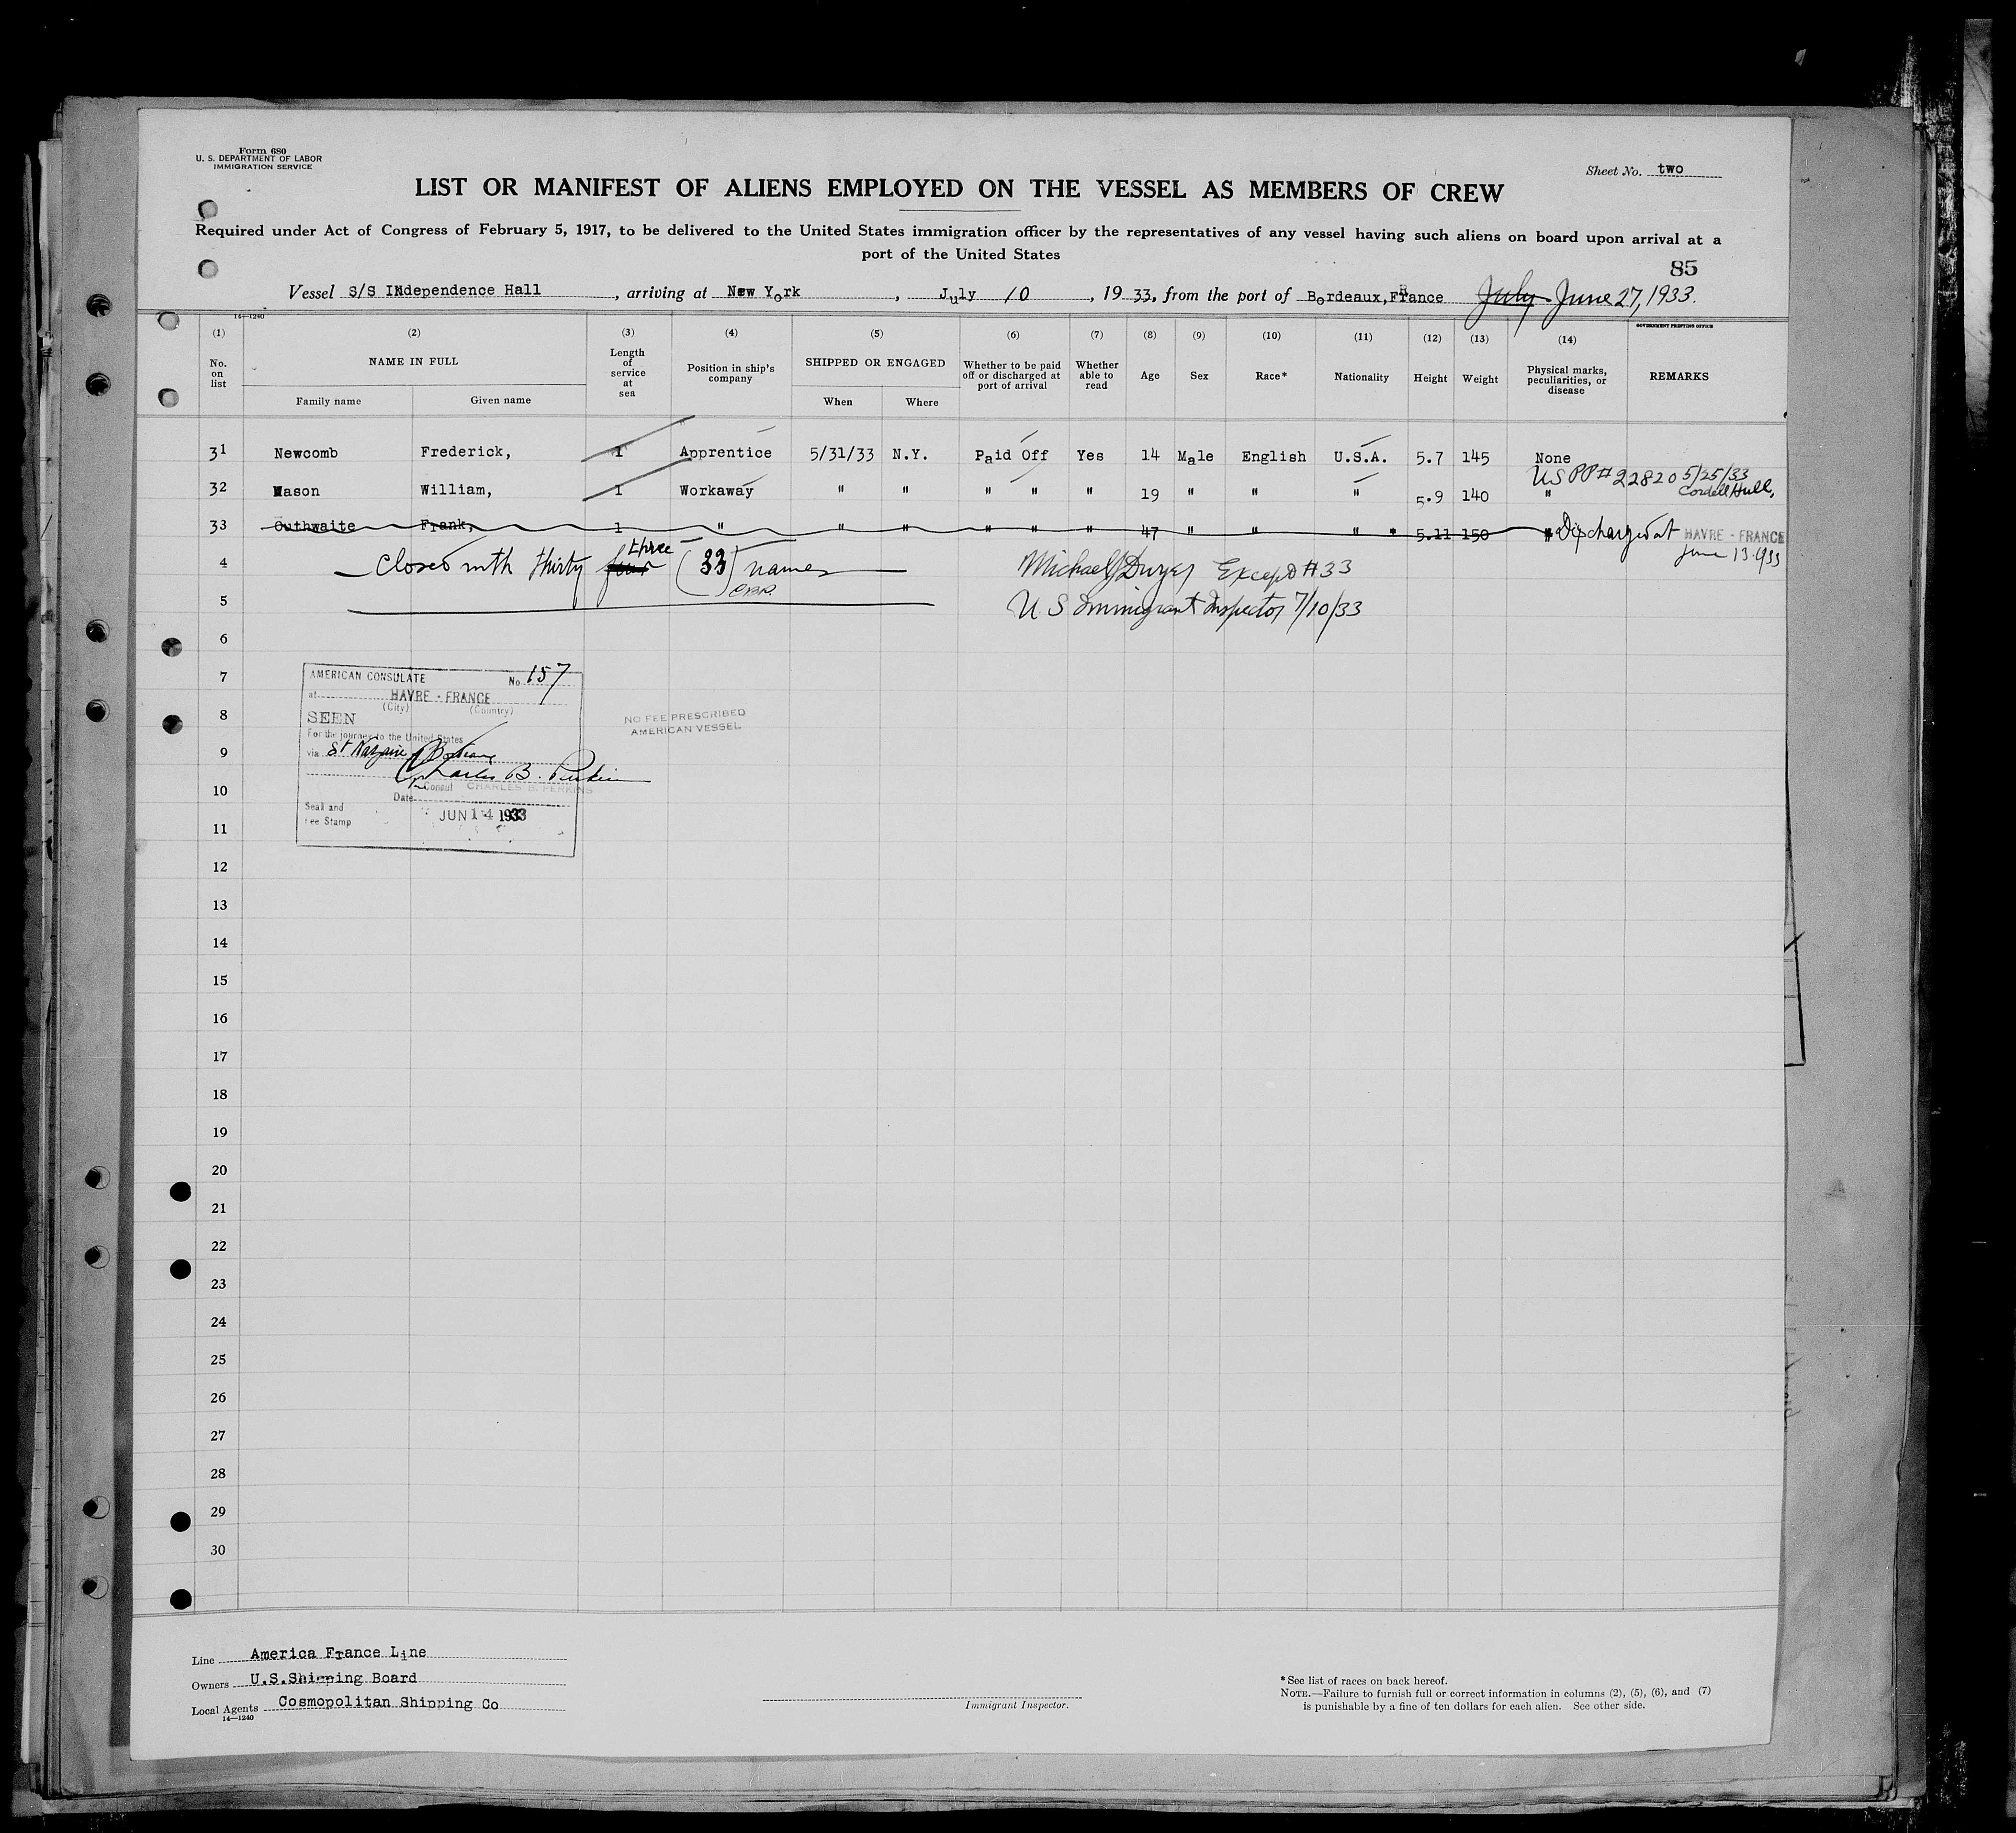 Form 680
U. S. DEPARTMENT OF LABOR
IMMIGRATION SERVICE
Sheet No. two
LIST OR MANIFEST OF ALIENS EMPLOYED ON THE VESSEL AS MEMBERS OF CREW
Required under Act of Congress of February 5, 1917, to be delivered to the United States immigration officer by the representatives of any vessel having such aliens on board upon arrival at a
port of the United States
85
Vessel S/S Independence Hall, arriving at New York, July 10, 1933, from the port of Bordeaux, France July June 27, 1933.
14-1240
GOVERNMENT PRINTING OFFICE
(1) (2) (3) (4) (5) (6) (7) (8) (9) (10) (11) (12) (13) (14)
No. on list NAME IN FULL Family name Given name Length of service at sea Position in ship's company SHIPPED OR ENGAGED When Where Whether to be paid off or discharged at port of arrival Whether able to read Age Sex Race* Nationality Height Weight Physical marks, peculiarities, or disease REMARKS
31 Newcomb Frederick, 1 Apprentice 5/31/33 N.Y. Paid Off Yes 14 Male English U.S.A. 5.7 145 None
US PP# 22820 5/25/33
32 Mason William, 1 Workaway " " " " " 19 " " " 5.9 140 " Cordell Hull,
33 Outhwaite Frank, 1 " " " " " " 47 " " " * 5.11 150 " Discharged at HAVRE - FRANCE
June 13-1933
three
4 Closed with thirty four (33) names Michael J Dwyer Except #33
5 U S Immigrant Inspector 7/10/33
6
7
8
9
10
11
12
13
14
15
16
17
18
19
20
21
22
23
24
25
26
27
28
29
30
AMERICAN CONSULATE No. 157
at HAVRE - FRANCE
(City) (Country)
SEEN
For the journey to the United States
via St Nazaire
Charles B. Perkins
Consul CHARLES B. PERKINS
Date
Seal and
Fee Stamp
JUN 14 1933
NO FEE PRESCRIBED
AMERICAN VESSEL
Line America France Line
Owners U.S.Shipping Board
Local Agents Cosmopolitan Shipping Co
14—1240
Immigrant Inspector.
*See list of races on back hereof.
NOTE.—Failure to furnish full or correct information in columns (2), (5), (6), and (7)
is punishable by a fine of ten dollars for each alien. See other side.